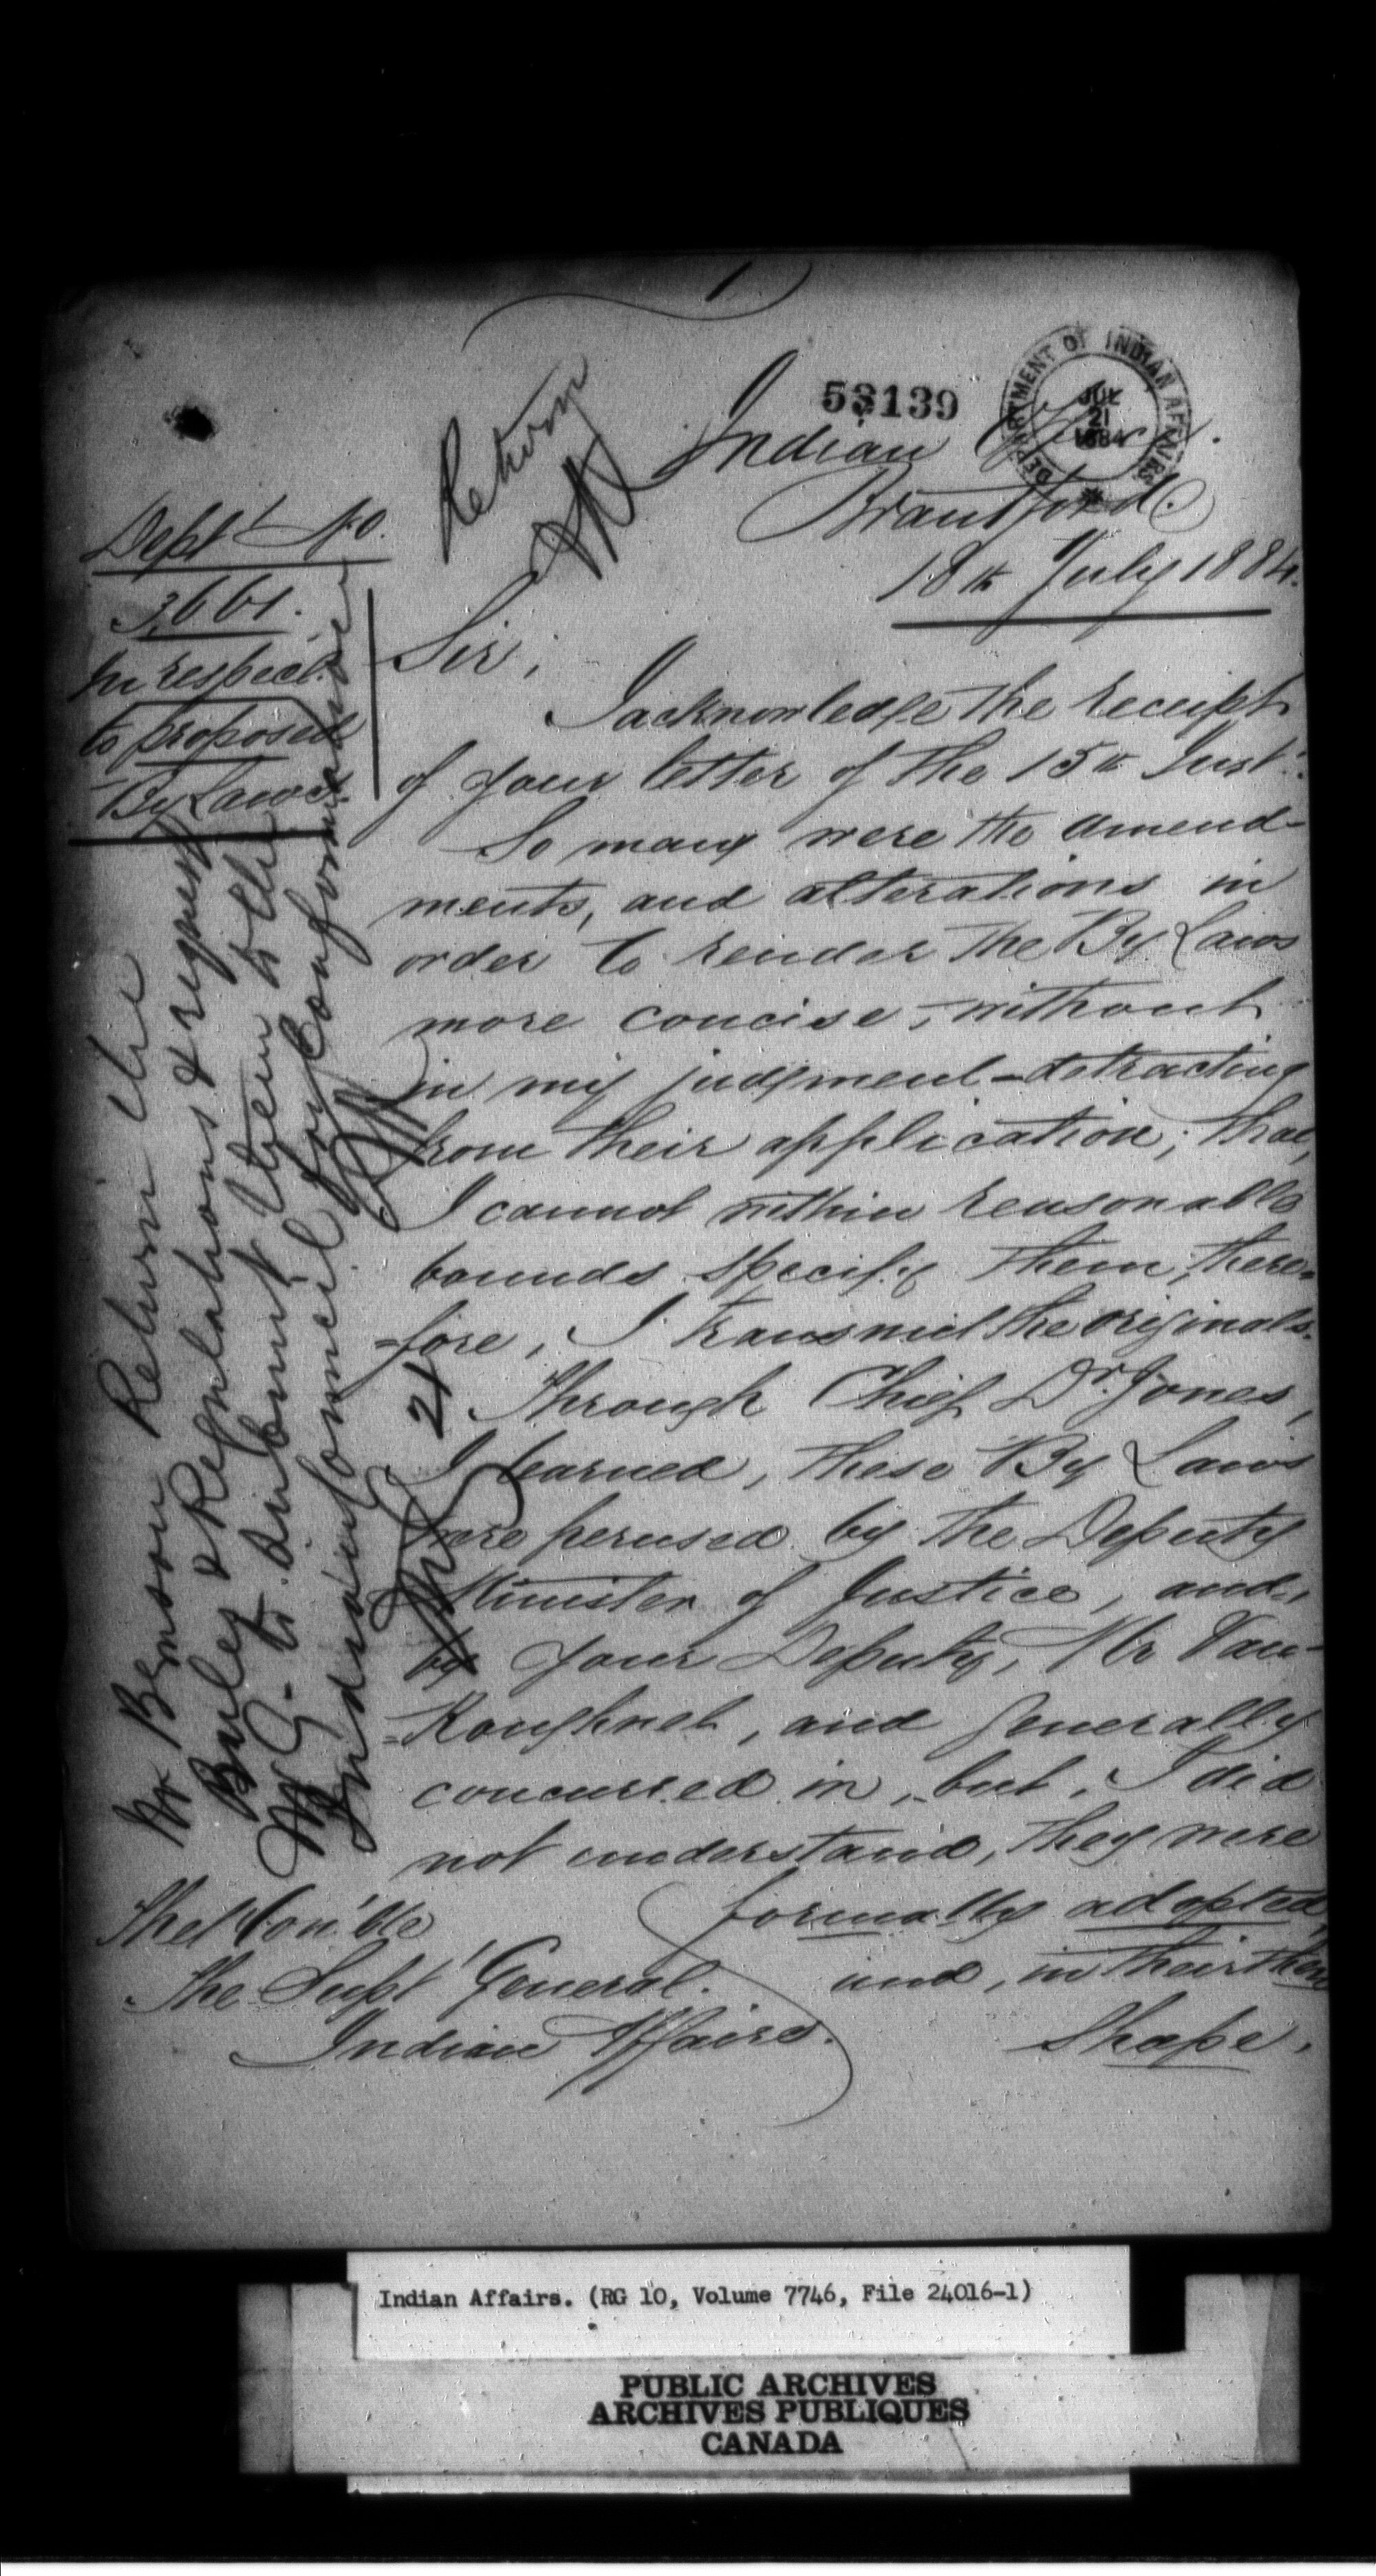 1
53139
DEPARTMENT OF INDIAN AFFAIRS
JUL
21
1884
Return
Indian Office.
Brantford.
18th July 1884.
Dept No.
3,661.
In respect
to proposed
By Laws.
Sir;
I acknowledge the receipt
of your letter of the 15th Inst.
So many were the amend-
ments, and alterations in
order to render the By Laws
more concise, without
in my judgment - detracting
from their application; that,
I cannot within reasonable
bounds specify them, there-
=fore, I transmit the originals.
Through Chief Dr. Jones,
I learned, these By Laws
were perused by the Deputy
Minister of Justice, and,
by your Deputy, Mr Van-
=Koughnet, and generally
concurred in, but, I did
not understand, they were
formally adopted,
and, in their then
Shape.
The Hon'ble
The Supt General.
Indian Affairs.
Mr Benson Return the
Rules & Regulations & request
to submit them to the
Indian Council for Confirmation
21
Indian Affairs. (RG 10, Volume 7746, File 24016-1)
PUBLIC ARCHIVES
ARCHIVES PUBLIQUES
CANADA